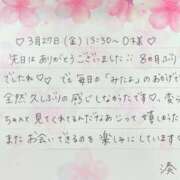 ♡3月27日(金)15:30〜O様♡
先日はありがとうございました:) 8か月ぶり
でしたね♡♡ でも毎日の「みたよ」のおかげで
全然久しぶりの感じしなかったです♡、
ちゃんと見てくれてるんだなあって
また お会いできるのを 楽しみにしています
湊